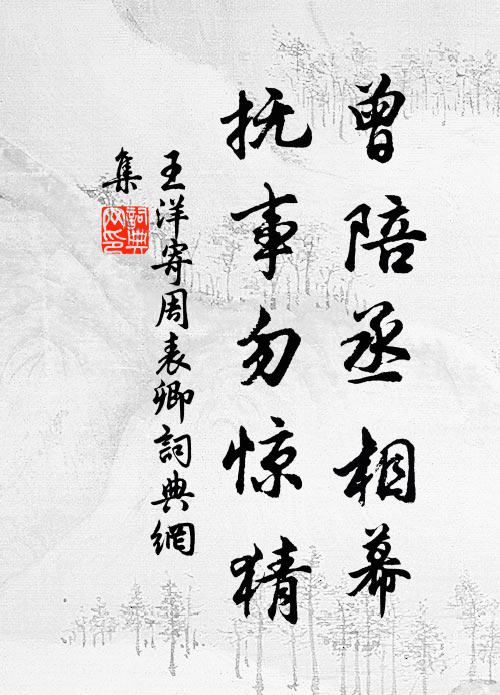 曾陪丞相幕
抚事勿惊猜
王洋寄周表卿詞典網
集
詞典網印